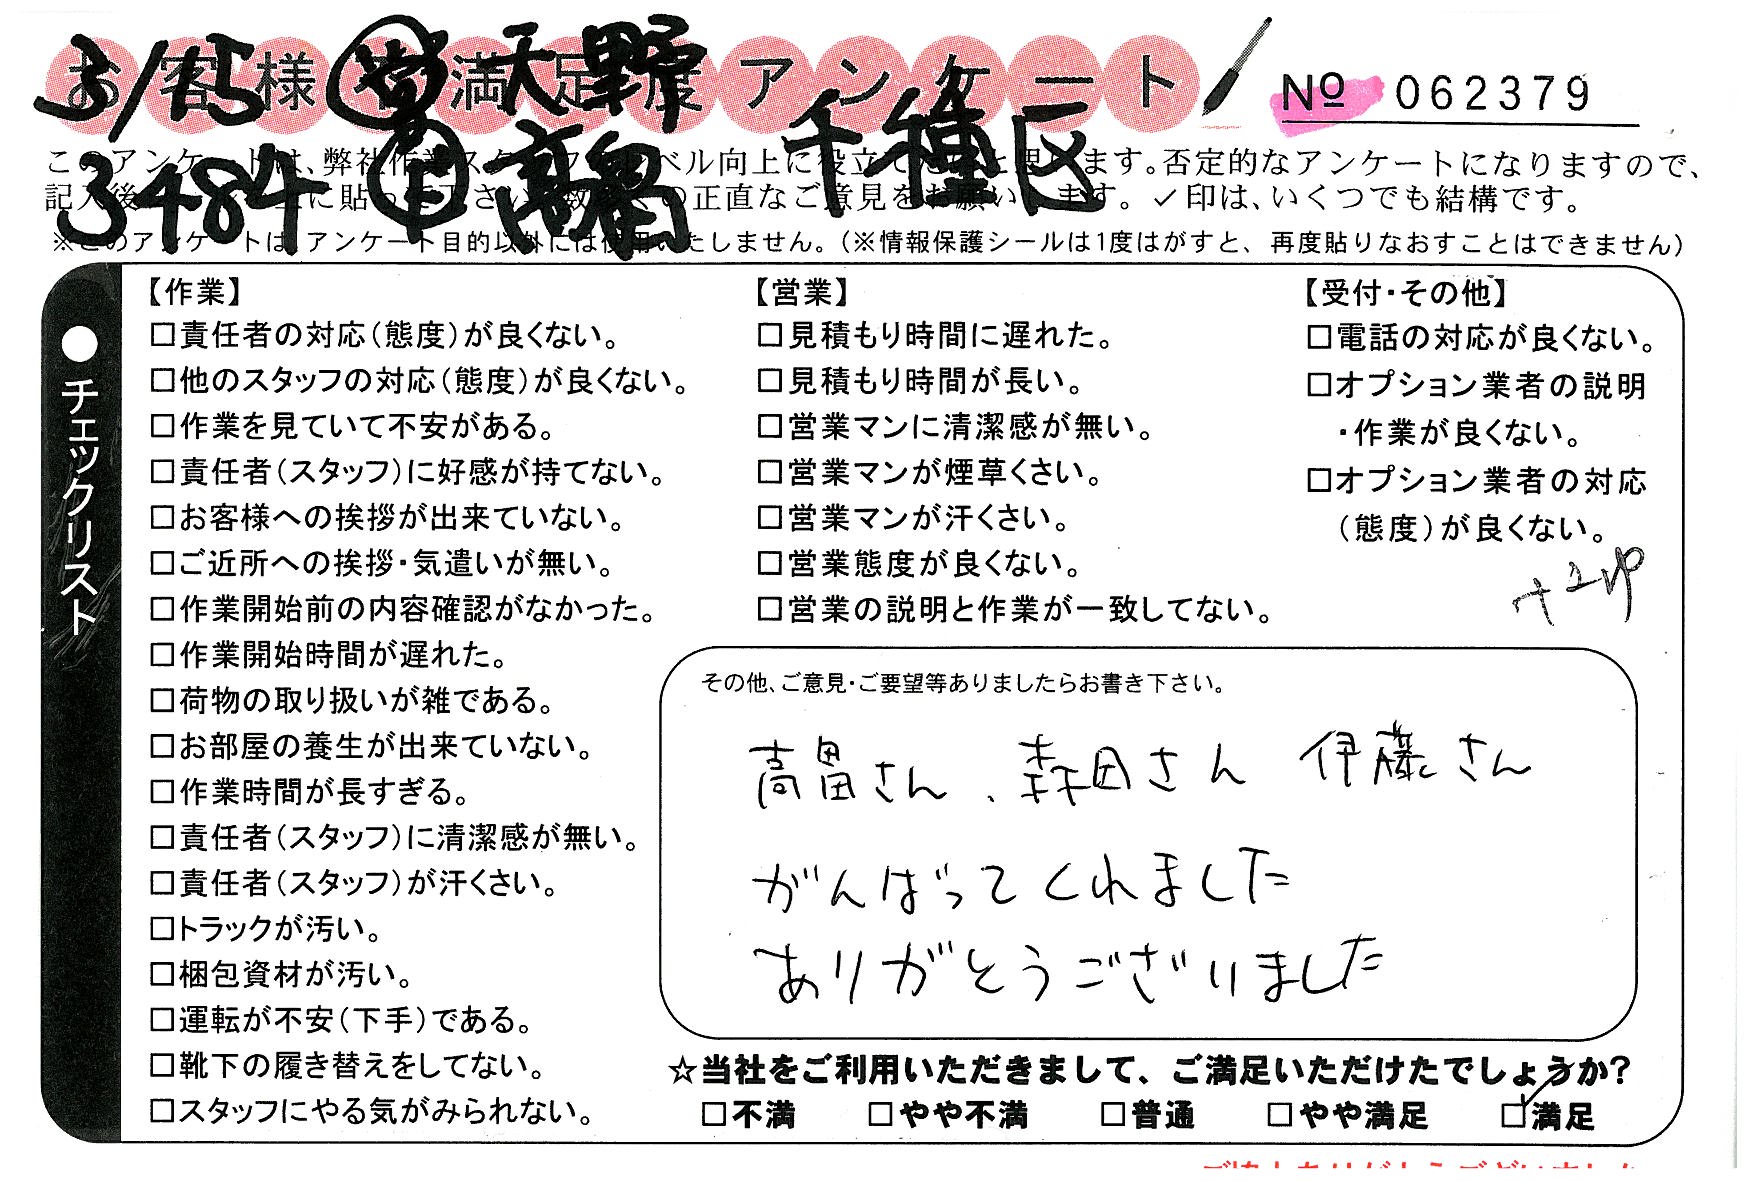 お客様の満足度アンケート
№ 062379
3/15 営 天野 千種区
3484 高畠
このアンケートは、弊社作業スタッフのレベル向上に役立てたいと思います。否定的なアンケートになりますので、
記入後 に貼って下さい。数多くの正直なご意見をお願いします。✓印は、いくつでも結構です。
※このアンケートは、アンケート目的以外には使用いたしません。(※情報保護シールは1度はがすと、再度貼りなおすことはできません)
●チェックリスト
【作業】
□責任者の対応(態度)が良くない。
□他のスタッフの対応(態度)が良くない。
□作業を見ていて不安がある。
□責任者(スタッフ)に好感が持てない。
□お客様への挨拶が出来ていない。
□ご近所への挨拶・気遣いが無い。
□作業開始前の内容確認がなかった。
□作業開始時間が遅れた。
□荷物の取り扱いが雑である。
□お部屋の養生が出来ていない。
□作業時間が長すぎる。
□責任者(スタッフ)に清潔感が無い。
□責任者(スタッフ)が汗くさい。
□トラックが汚い。
□梱包資材が汚い。
□運転が不安(下手)である。
□靴下の履き替えをしてない。
□スタッフにやる気がみられない。
【営業】
□見積もり時間に遅れた。
□見積もり時間が長い。
□営業マンに清潔感が無い。
□営業マンが煙草くさい。
□営業マンが汗くさい。
□営業態度が良くない。
□営業の説明と作業が一致してない。
【受付・その他】
□電話の対応が良くない。
□オプション業者の説明
・作業が良くない。
□オプション業者の対応
(態度)が良くない。
+2pp
その他、ご意見・ご要望等ありましたらお書き下さい。
高畠さん、森田さん 伊藤さん
がんばってくれました
ありがとうございました
☆当社をご利用いただきまして、ご満足いただけたでしょうか?
□不満 □やや不満 □普通 □やや満足 ☑満足
ご協力ありがとうございました